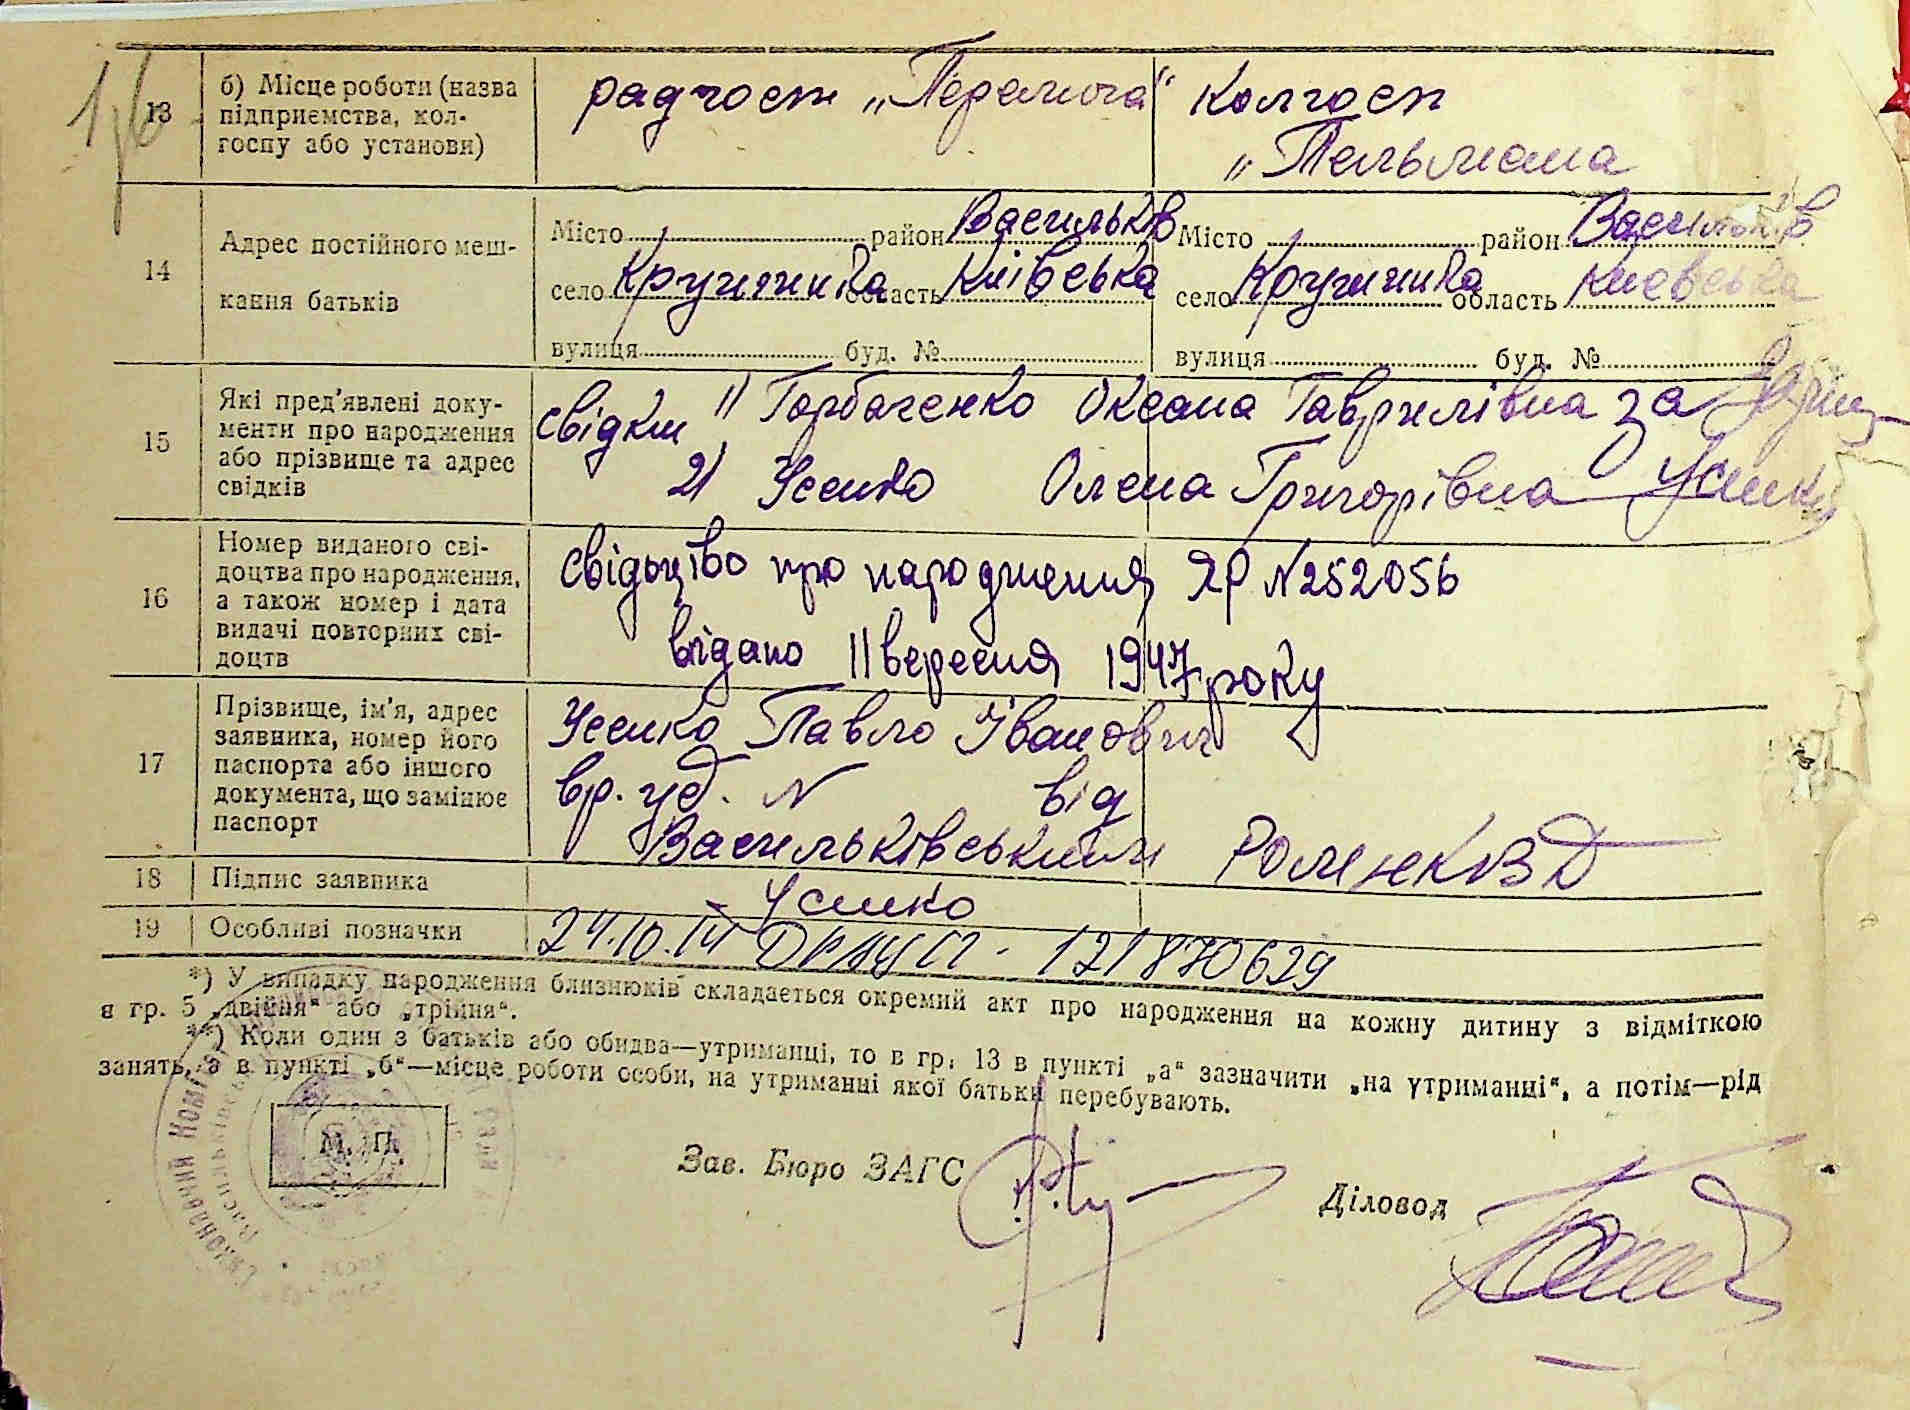 13
б) Місце роботи (назва
підприємства, кол-
госпу або установи)
радгосп „Перемога“
Колгосп
„Тельмана
14
Адрес постійного меш-
кання батьків
Місто район Васильків
село Кручинка область Київська
вулиця буд. №
Місто район Васильків
село Кручинка область Киевська
вулиця буд. №
15
Які пред'явлені доку-
менти про народження
або прізвище та адрес
свідків
свідки 1) Горбаченко Оксана Гаврилівна за
2) Усенко Олена Григорівна Усенко
16
Номер виданого сві-
доцтва про народження,
а також номер і дата
видачі повторних сві-
доцтв
свідоцтво про народження ЯР N252056
видано 11 вересня 1947 року
17
Прізвище, ім'я, адрес
заявника, номер його
паспорта або іншого
документа, що замінює
паспорт
Усенко Павло Іванович
вр. уд. N від
Васильківським РОМ НКВД
18
Підпис заявника
Усенко
19
Особливі позначки
24.10.14 ДРАЦСГ - 121870629
*) У випадку народження близнюків складається окремий акт про народження на кожну дитину з відміткою
в гр. 5 „двійня“ або „трійня“.
**) Коли один з батьків або обидва—утриманці, то в гр. 13 в пункті „а“ зазначити „на утриманні“, а потім—рід
занять, а в пункті „б“—місце роботи особи, на утриманні якої батьки перебувають.
М. П.
Зав. Бюро ЗАГС
Діловод